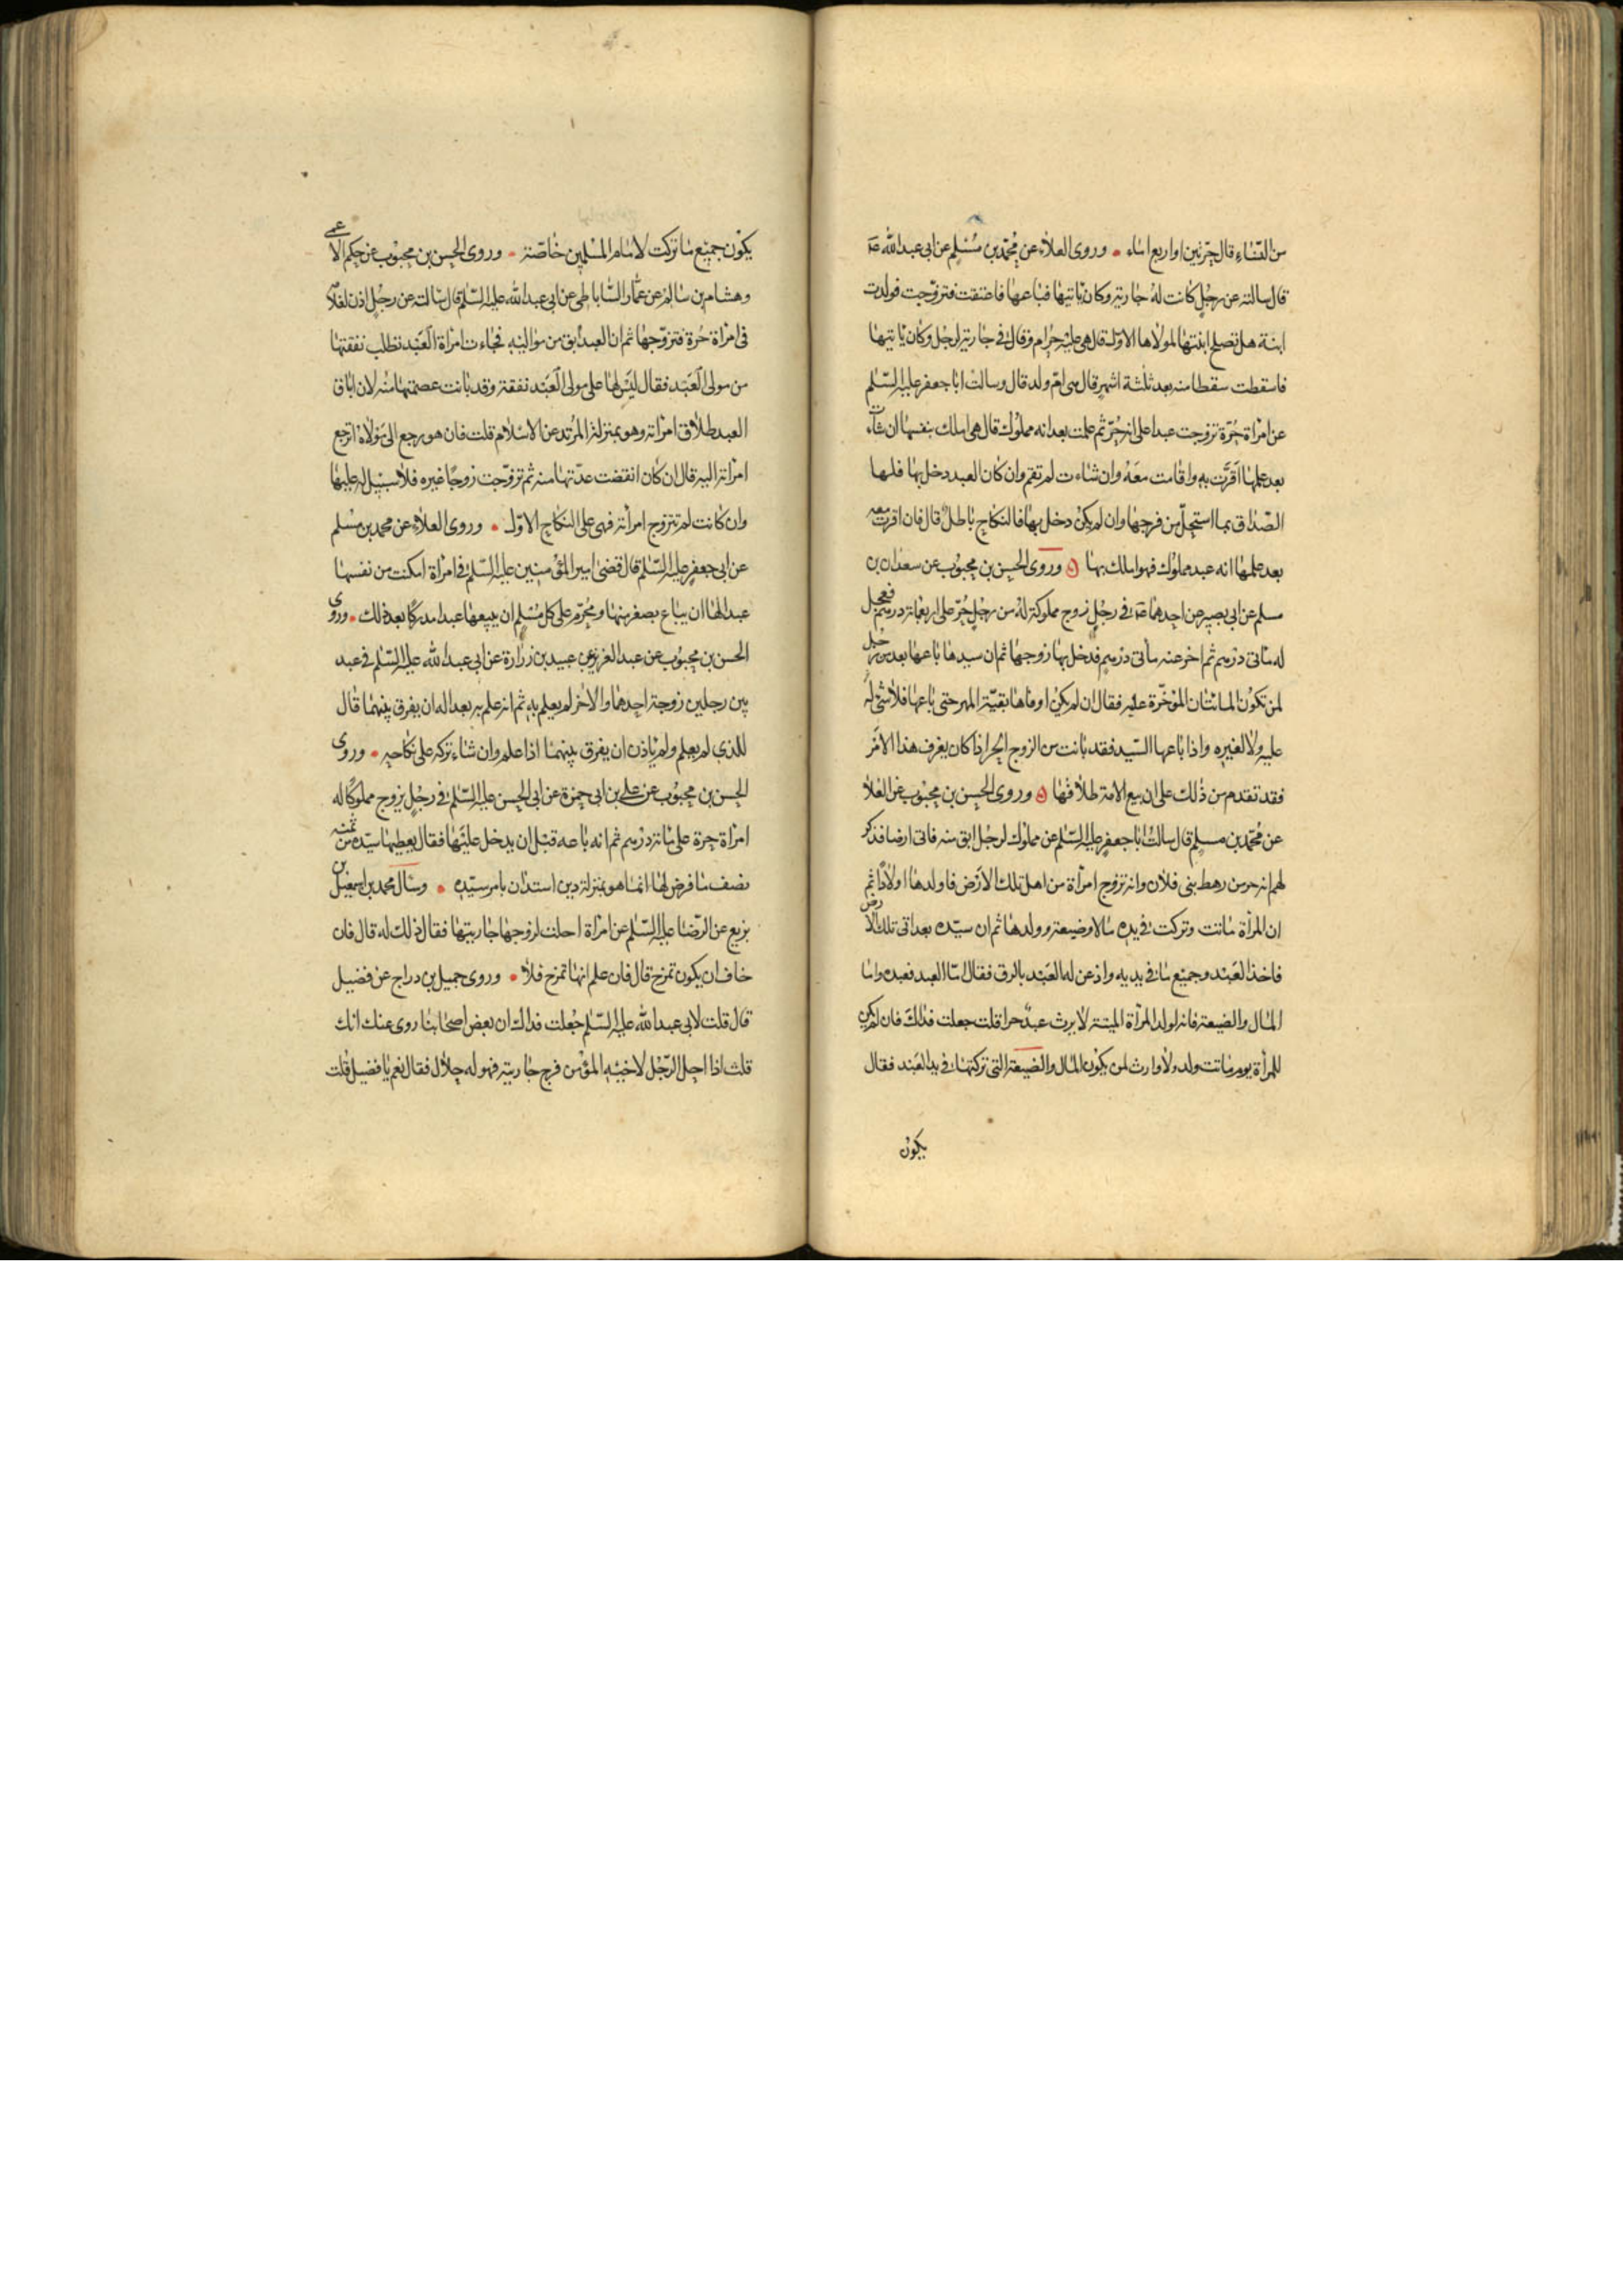 من النساء قال حرتين او اربع اماء • وروى العلاء عن محمد بن مسلم عن ابى عبد الله ع
قال سالته عن رجل كانت له جارية وكان ياتيها فباعها فاعتقت فتزوجت فولدت
ابنة هل تصلح ابنتها لمولاها الاول قال هى عليه حرام وقال فى جارية لرجل وكان ياتيها
فاسقطت سقطا منه بعد ثلثة اشهر قال هى ام ولد قال وسالت ابا جعفر عليه السلم
عن امراة حرة تزوجت عبدا على انه حر ثم علمت بعد انه مملوك قال هى املك بنفسها ان شاءت
بعد علمها اقرت به واقامت معه وان شاءت لم تقم وان كان العبد دخل بها فلها
الصداق بما استحل من فرجها وان لم يكن دخل بها فالنكاح باطل قال فان اقرت معه
بعد علمها انه عبد مملوك فهو املك بها ه وروى الحسن بن محبوب عن سعدان بن
مسلم عن ابى بصير عن احدهما ع فى رجل زوج مملوكة له من رجل حر على اربعماة درهم فعجل
له ماتى درهم ثم اخر عنه ماتى درهم فدخل بها زوجها ثم ان سيدها باعها بعد من رجل
لمن تكون المائتان المؤخرة عليه فقال ان لم يكن اوفاها بقية المهر حتى باعها فلا شئ له
عليه ولا لغيره واذا باعها السيد فقد بانت من الزوج الحر اذا كان يعرف هذا الامر
فقد تقدم من ذلك على ان بيع الامة طلاقها ه وروى الحسن بن محبوب عن العلا
عن محمد بن مسلم قال سالت ابا جعفر عليه السلم عن مملوك لرجل ابق منه فاتى ارضا فذكر
لهم انه حر من رهط بنى فلان وانه تزوج امراة من اهل تلك الارض فاولدها اولادا ثم
ان المراة ماتت وتركت فى يده مالا وضيعة وولدها ثم ان سيده بعد اتى تلك الارض
فاخذ العبد وجميع ما فى يديه واذعن له العبد بالرق فقال اما العبد فعبده واما
المال والضيعة فانه لولد المراة الميتة لا يرث عبد حرا قلت جعلت فداك فان لم يكن
للمراة يوم ماتت ولد ولا وارث لمن يكون المال والضيعة التى تركتها فى يد العبد فقال
يكون
يكون جميع ما تركت لامام المسلمين خاصة • وروى الحسن بن محبوب عن حكم الاعمى
وهشام بن سالم عن عمار الساباطى عن ابى عبد الله عليه السلم قال سالته عن رجل اذن لغلامه
فى امراة حرة فتزوجها ثم ان العبد ابق من مواليه فجاءت امراة العبد تطلب نفقتها
من مولى العبد فقال ليس لها على مولى العبد نفقة وقد بانت عصمتها منه لان اباق
العبد طلاق امراته وهو بمنزلة المرتد عن الاسلام قلت فان هو رجع الى مولاه اترجع
امراته اليه قال ان كان انقضت عدتها منه ثم تزوجت زوجا غيره فلا سبيل له عليها
وان كانت لم تتزوج امراته فهى على النكاح الاول • وروى العلاء عن محمد بن مسلم
عن ابى جعفر عليه السلم قال قضى امير المؤمنين عليه السلم فى امراة امكنت من نفسها
عبدا لها ان يباع بصغر منها ومحرم على كل مسلم ان يبيعها عبدا مدركا بعد ذلك • وروى
الحسن بن محبوب عن عبد العزيز عن عبيد بن زرارة عن ابى عبد الله عليه السلم فى عبد
بين رجلين زوجه احدهما والاخر لم يعلم به ثم انه علم به بعد اله ان يفرق بينهما قال
للذى لم يعلم ولم ياذن ان يفرق بينهما اذا علم وان شاء تركه على نكاحه • وروى
الحسن بن محبوب عن على بن ابى حمزة عن ابى الحسن عليه السلم فى رجل يزوج مملوكا له
امراة حرة على مائة درهم ثم انه باعه قبل ان يدخل عليها فقال يعطيها سيده من ثمنه
نصف ما فرض لها انما هو بمنزلة دين استدان بامر سيده • وسال محمد بن اسمعيل بن
بزيع عن الرضا عليه السلم عن امراة احلت لزوجها جاريتها فقال ذلك له قال فان
خاف ان يكون تمزح قال فان علم انها تمزح فلا • وروى جميل بن دراج عن فضيل
قال قلت لابى عبد الله عليه السلم جعلت فداك ان بعض اصحابنا روى عنك انك
قلت اذا احل الرجل لاخيه المؤمن فرج جاريته فهو له حلال فقال نعم يا فضيل قلت